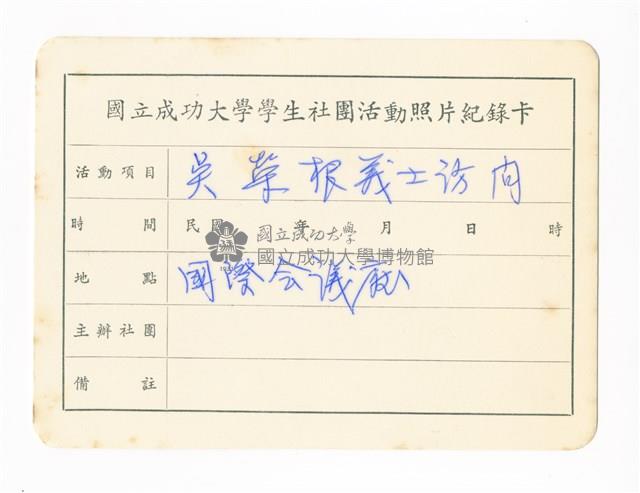 國立成功大學學生社團活動照片紀錄卡
活動項目 吳榮根義士訪問
時間 民國 年 月 日 時
國立成功大學
國立成功大學博物館
地點 國際会議廳
主辦社團
備註